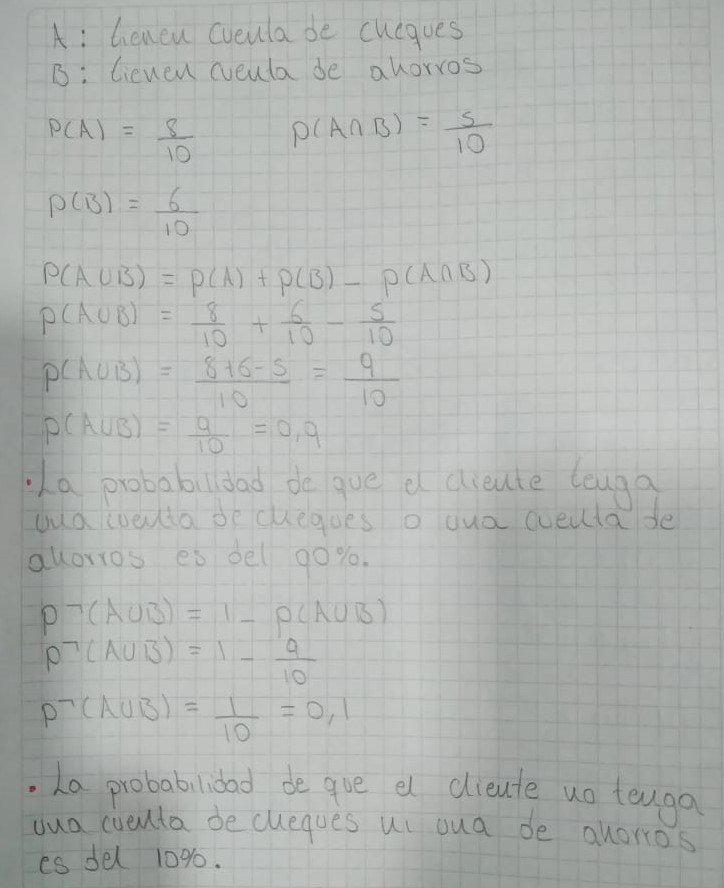 A: tienen cuenta de cheques
B: tienen cuenta de ahorros
P(A) = 8/10 P(A∩B) = 5/10
P(B) = 6/10
P(A∪B) = P(A) + P(B) - P(A∩B)
P(A∪B) = 8/10 + 6/10 - 5/10
P(A∪B) = 8+6-5/10 = 9/10
P(A∪B) = 9/10 = 0,9
• La probabilidad de que el cliente tenga
una cuenta de cheques o una cuenta de
ahorros es del 90%.
P¬(A∪B) = 1 - P(A∪B)
P¬(A∪B) = 1 - 9/10
P¬(A∪B) = 1/10 = 0,1
• La probabilidad de que el cliente no tenga
una cuenta de cheques ni una de ahorros
es del 10%.